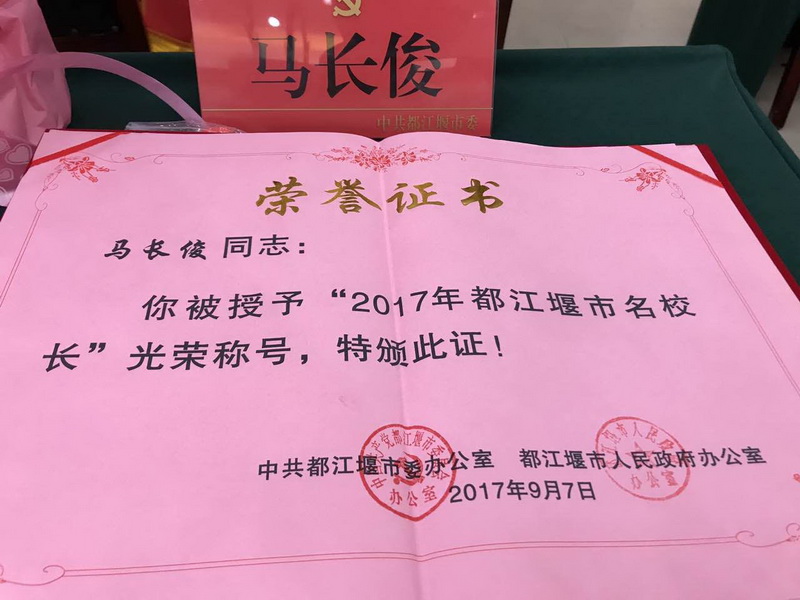 马长俊
中共都江堰市委
荣誉证书
马长俊同志：
你被授予“2017年都江堰市名校
长”光荣称号，特颁此证！
中共都江堰市委办公室 都江堰市人民政府办公室
2017年9月7日
中国共产党都江堰市委员会
办公室
办公室